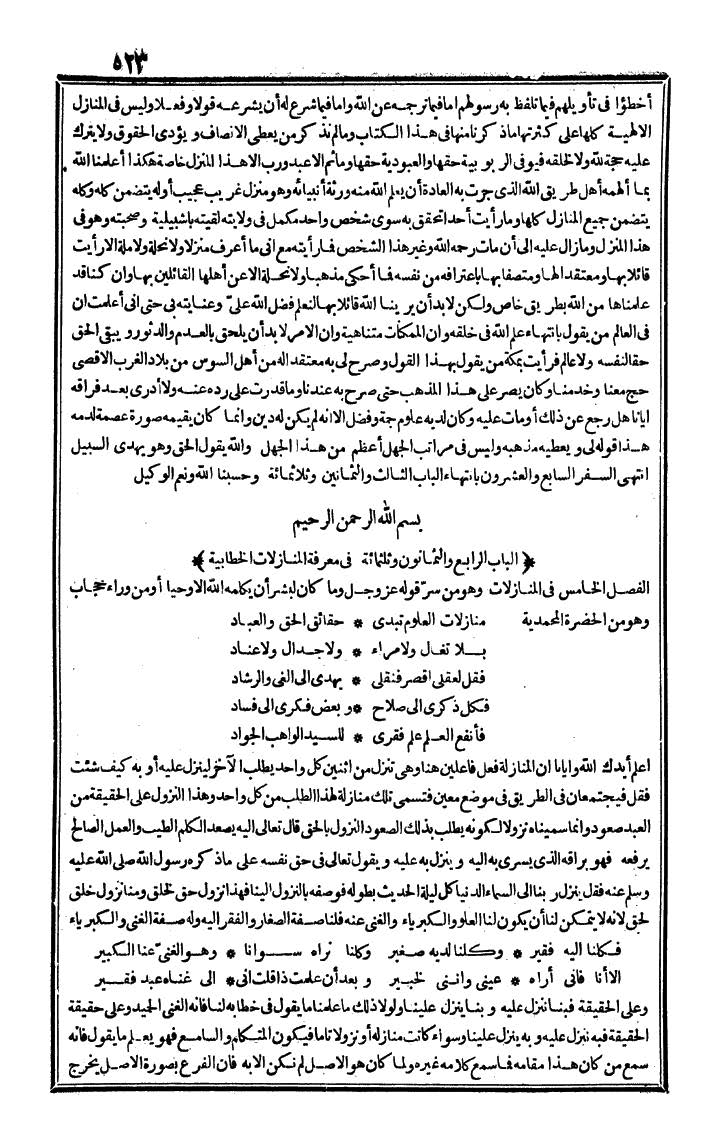 ٥٢٣
أخطؤا فى تأويلهم فيما تلفظ به رسولهم اما فيما ترجمه عن الله واما فيما شرع له أن يشرعه قولا وفعلا وليس فى المنازل
الالهية كلها على كثرتها ماذكرنا منها فى هذا الكتاب ومالم نذكر من يعطى الانصاف ويؤدى الحقوق ولا يترك
عليه حجة لله ولا لخلقه فيوفى الربوبية حقها والعبودية حقها وماثم الاعبد ورب الاهذا المنزل خاصة هكذا أعلمنا الله
بما ألهمه أهل طريق الله الذى جرت به العادة أن يعلم الله منه ورثة أنبيائه وهو منزل غريب عجيب أوله يتضمن كله وكله
يتضمن جميع المنازل كلها وما رأيت أحدا تحقق به سوى شخص واحد مكمل فى ولايته لقيته باشبيلية وصحبته وهو فى
هذا المنزل ومازال عليه الى أن مات رحمه الله وغير هذا الشخص فمارأيته مع انى ما أعرف منزلا ولا نحلة ولاملة الارأيت
قائلا بها ومعتقدا لها ومتصفا بها باعترافه من نفسه فما أحكى مذهبا ولا نحلة الاعن أهلها القائلين بها وان كنا قد
علمناها من الله بطريق خاص ولكن لابد أن يرينا الله قائلا بها لنعلم فضل الله علىّ وعنايته فى حتى انى أعلمت ان
فى العالم من يقول بانتهاء علم الله فى خلقه وان الممكنات متناهية وان الامر لابد أن يلحق بالعدم والدثور ويبقى الحق
حقا لنفسه ولا عالم فرأيت بمكة من يقول بهذا القول وصرح لى به معتقدا له من أهل السوس من بلاد الغرب الاقصى
حج معنا وخدمنا وكان يصر على هذا المذهب حتى صرح به عندنا وماقدرت على رده عنه ولا أدرى بعد فراقه
ايانا هل رجع عن ذلك أومات عليه وكان لديه علوم جة وفضل الاانه لم يكن له دين وانما كان يقيمه صورة عصمة لدمه
هذا قوله لى ويعطيه مذهبه وليس فى مراتب الجهل أعظم من هذا الجهل والله يقول الحق وهو يهدى السبيل
انتهى السفر السابع والعشرون بانتهاء الباب الثالث والثمانين وثلاثمائة وحسبنا الله ونعم الوكيل
بسم الله الرحمن الرحيم
﴿ الباب الرابع والثمانون وثلثمائة فى معرفة المنازلات الخطابية ﴾
الفصل الخامس فى المنازلات وهو من سرّ قوله عز وجل وما كان لبشر أن يكلمه الله الا وحيا أو من وراء حجاب
وهو من الحضرة المحمدية منازلات العلوم تبدى * حقائق الحق والعباد
بلا تغال ولامراء * ولا جدال ولا عناد
فقل لعقلى اقصر فنقلى * يهدى الى الغى والرشاد
فكل ذكرى الى صلاح * وبعض فكرى الى فساد
فأنفع العلم علم فقرى * للسيد الواهب الجواد
اعلم أيدك الله وايانا ان المنازلة فعل فاعلين هنا وهى تنزل من اثنين كل واحد يطلب الآخر لينزل عليه أو به كيف شئت
فقل فيجتمعان فى الطريق فى موضع معين فتسمى تلك منازلة لهذا الطلب من كل واحد وهذا النزول على الحقيقة من
العبد صعود وانما سميناه نزولا لكونه يطلب بذلك الصعود النزول بالحق قال تعالى اليه يصعد الكلم الطيب والعمل الصالح
يرفعه فهو براقه الذى يسرى به اليه وينزل به عليه ويقول تعالى فى حق نفسه على ماذكره رسول الله صلى الله عليه
وسلم عنه فقل ينزل ربنا الى السماء الدنيا كل ليلة الحديث بطوله فوصفه بالنزول الينا فهذا نزول حق لخلق ومنا نزول خلق
لحق لانه لايتمكن لنا أن يكون لنا العلو والكبرياء والغنى عنه فلنا صفة الصغار والفقر اليه وله صفة الغنى والكبرياء
فكلنا اليه فقير * وكلنا لديه صغير وكلنا نراه سوانا * وهو الغنىّ عنا الكبير
الاأنا فانى أراه * عينى واننى لخبير وبعد أن علمت ذاقلت انى * الى غناه عبد فقير
وعلى الحقيقة فبنا ننزل عليه وبنا ينزل علينا ولولا ذلك ماعلمنا مايقول فى خطابه لنا فانه الغنى الحميد وعلى حقيقة
الحقيقة فبه ننزل عليه وبه ينزل علينا وسواء كانت منازله أو نزولا تاما فيكون المتكلم والسامع فهو يعلم مايقول فانه
سمع من كان هذا مقامه فماسمع كلامه غيره ولما كان هو الاصل لم نكن الابه فان الفرع بصورة الاصل يخرج